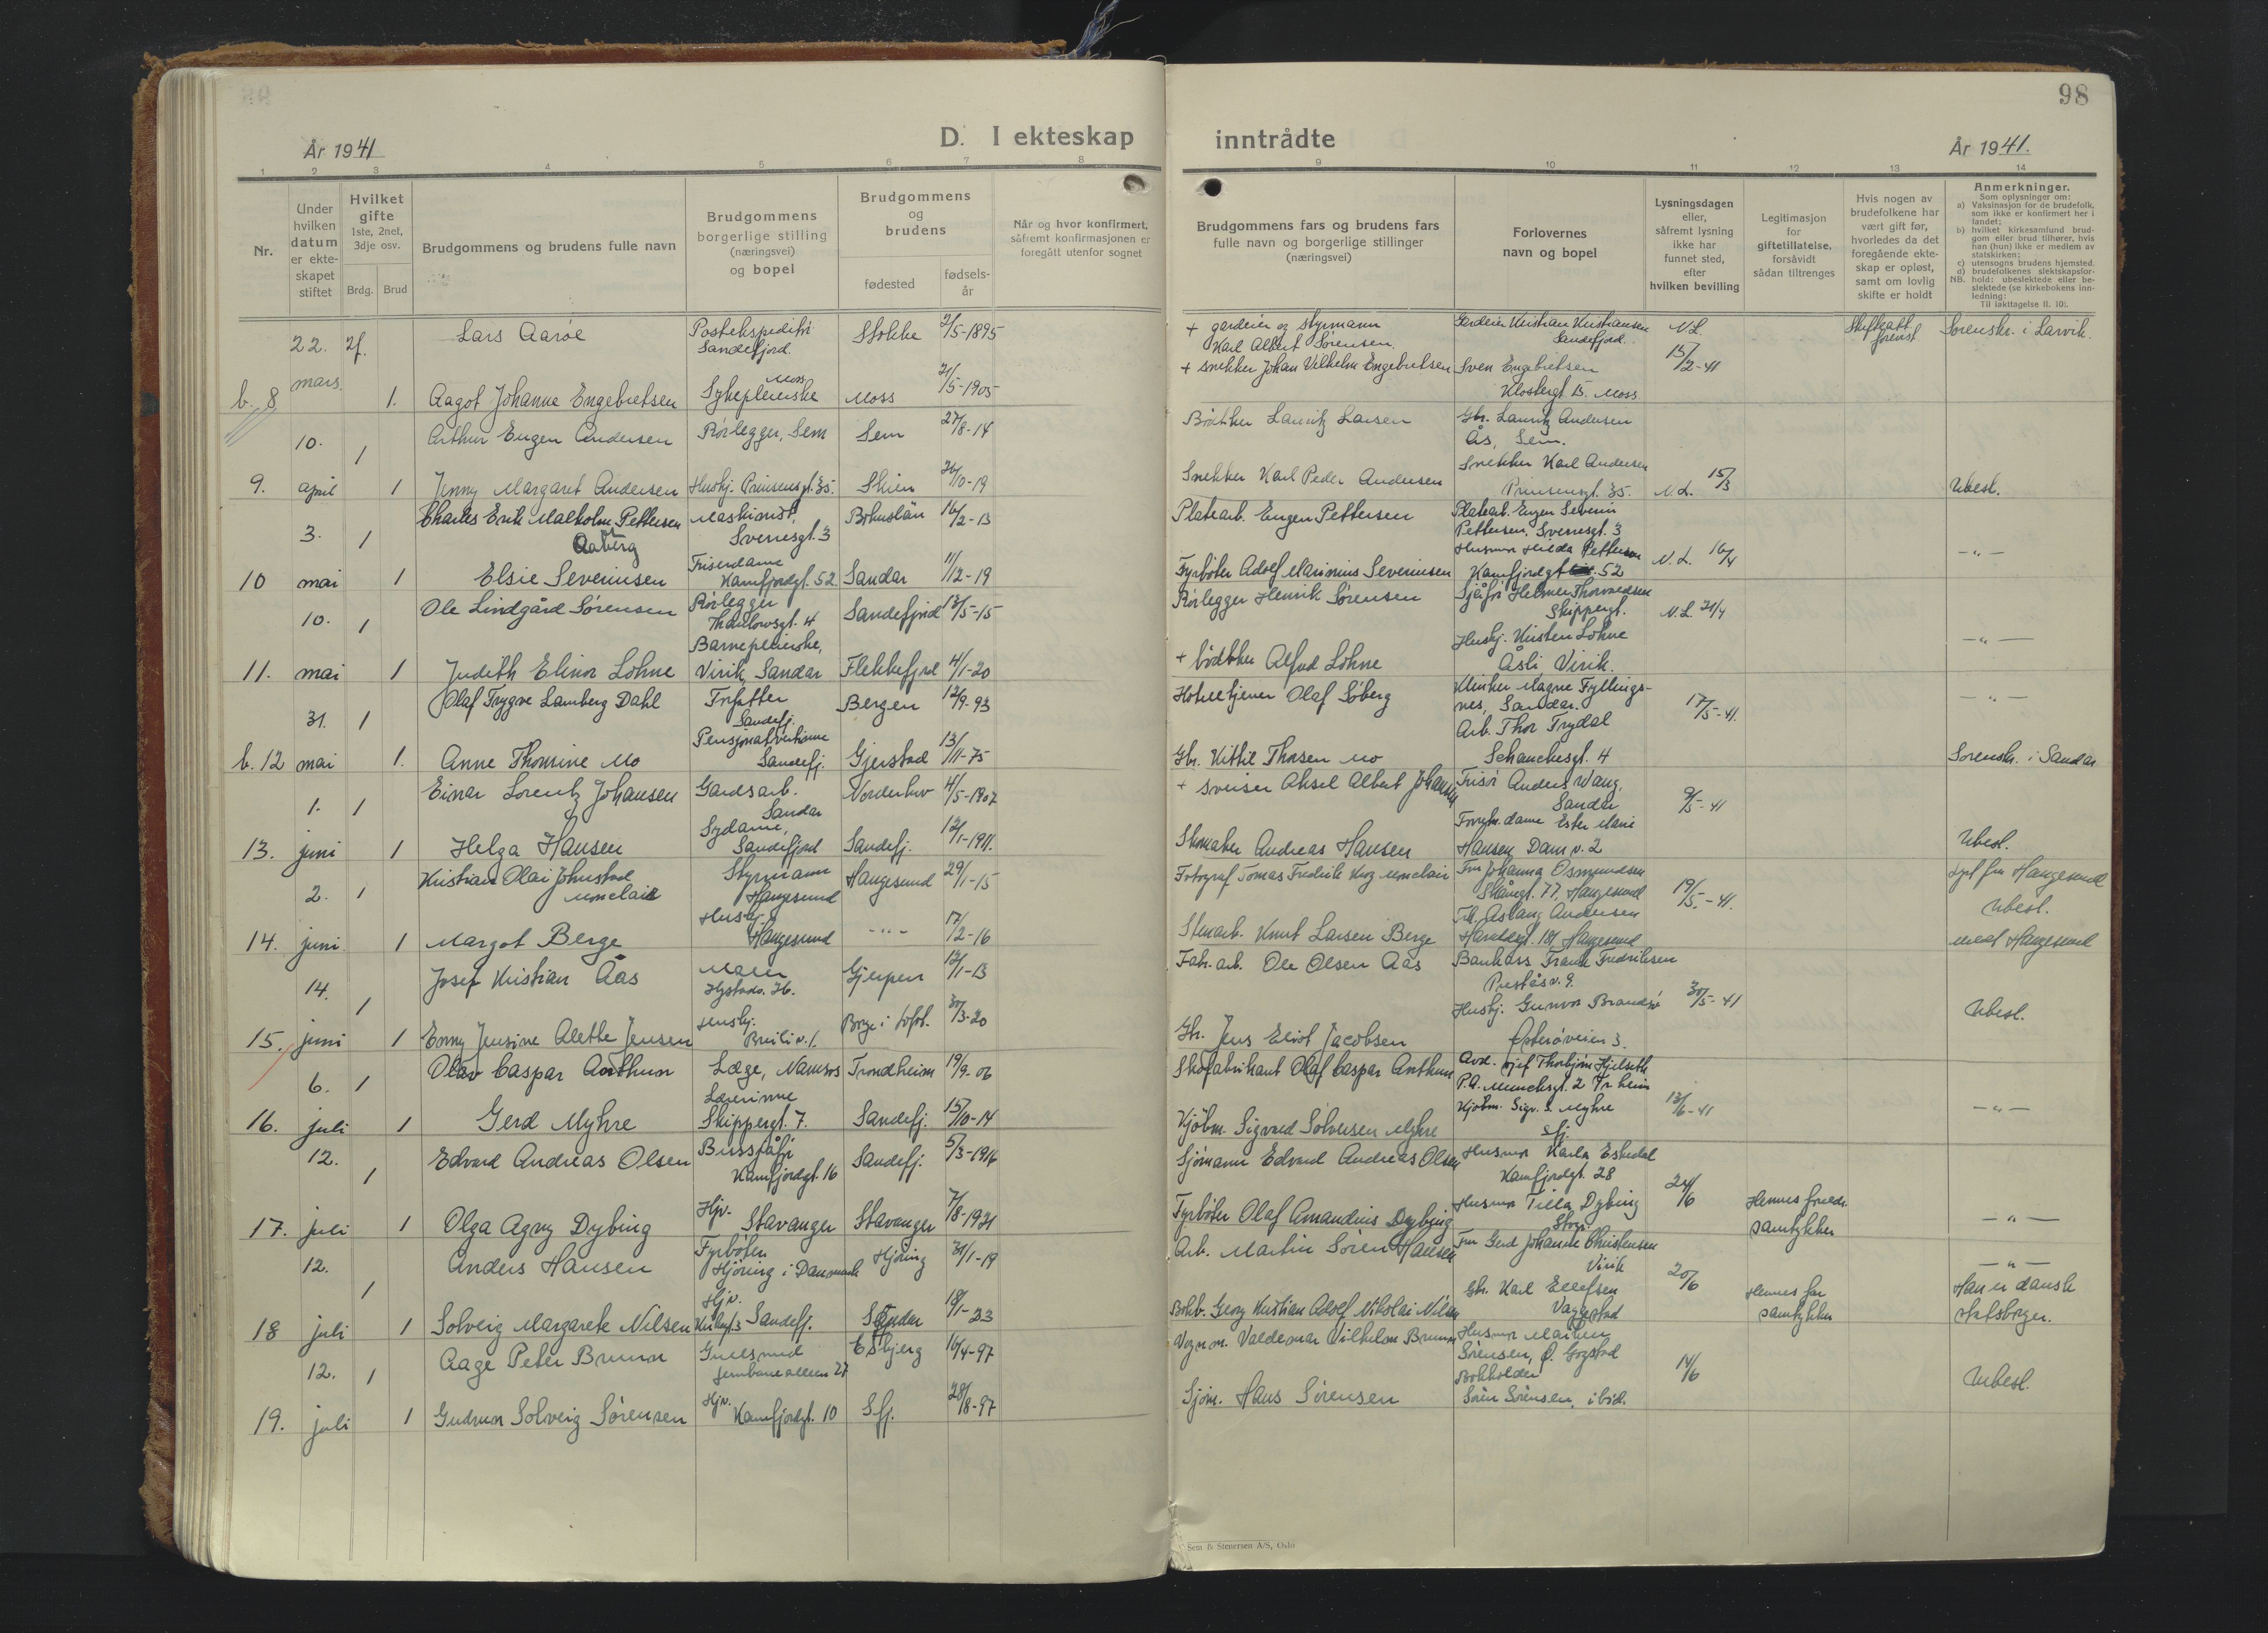 98
År 1941
D. I ekteskap
inntrådte
År 1941.
1 2 3 4 5 6 7 8
9 10 11 12 13 14
Nr.
Under hvilken datum er ekteskapet stiftet
Hvilket gifte
1ste, 2net, 3dje osv.
Brdg. Brud
Brudgommens og brudens fulle navn
Brudgommens borgerlige stilling (næringsvei) og bopel
Brudgommens og brudens
fødested
fødsels-år
Når og hvor konfirmert,
såfremt konfirmasjonen er
foregått utenfor sognet
Brudgommens fars og brudens fars
fulle navn og borgerlige stillinger
(næringsvei)
Forlovernes
navn og bopel
Lysningsdagen
eller,
såfremt lysning
ikke har
funnet sted,
efter
hvilken bevilling
Legitimasjon
for
giftetillatelse,
forsåvidt
sådan tiltrenges
Hvis nogen av
brudefolkene har
vært gift før,
hvorledes da det
foregående ekte-
skap er opløst,
samt om lovlig
skifte er holdt
Anmerkninger.
Som oplysninger om:
a) Vaksinasjon for de brudefolk,
som ikke er konfirmert her i
landet;
b) hvilket kirkesamfund brud-
gom eller brud tilhører, hvis
han (hun) ikke er medlem av
statskirken;
c) utensogns brudens hjemsted.
d) brudefolkenes slektskapsfor-
NB. hold: ubeslektede eller be-
slektede (se kirkebokens inn-
ledning:
Til iakttagelse II. 10).
22. 2f. Lars Aarøe Postekspeditør Sandefjord. Stokke 2/5-1895
+ gardeier og styrmann Karl Albert Sørensen. Gardeier Kristian Kristiansen Sandefjord. N.L. 15/2-41 Skifteatt. Sorenskr. i Larvik.
b. 8 mars. 1. Aagot Johanne Engebretsen Sykepleierske Moss Moss 21/5-1905
+ snekker Johan Vilhelm Engebretsen Sven Engebretsen Klostergt 15. Moss
10. 1 Arthur Eugen Andersen Rørlegger, Sem Sem 27/8-14
Bøtker Lauritz Larsen Gbr. Lauritz Andersen Ås, Sem.
9. april 1 Jenny Margaret Andersen Hushj. Prinsensgt. 35. Skien 26/10-19
Snekker Karl Peder Andersen Snekker Karl Andersen Prinsensgt. 35. N.L. 15/3 Ubesl.
3. 1 Charles Erik Malkolm Pettersen Aaberg Maskinist, Sverresgt. 3 Bohuslän 16/2-13
Platearb. Eugen Pettersen Platearb. Eugen Severin Pettersen, Sverresgt. 3
10 mai 1 Elsie Severinsen Friserdame Kamfjordgt. 52 Sandar 11/12-19
Fyrbøter Adolf Marinius Severinsen Husmor Hilda Pettersen Kamfjordgt 52 N.L. 16/4 -"-
10. 1 Ole Lindgård Sørensen Rørlegger Thaulowsgt. 4 Sandefjord 12/5-15
Rørlegger Henrik Sørensen Sjåfør Helmer Thorvaldsen Skippergt. N.L. 21/4
11. mai 1 Judith Elinor Lohne Barnepleierske, Virik, Sandar Flekkefjord 4/1-20
+ bødtker Alfred Lohne Hushj. Kirsten Lohne Åsli Virik. -"-
31. 1 Olaf Trygve Lamberg Dahl Forfatter Sandefj. Bergen 12/9-93
Hotelltjener Olaf Søberg Klinker Magne Fyllingsnes, Sandar. 17/5-41. -"-
b. 12 mai 1. Anne Thomine Mo Pensjonatvertinne Sandefj. Gjerstad 13/11-75
Gbr. Kittil Thorsen Mo Arb. Thor Trydal Schanchesgt. 4 Sorenskr. i Sandar
1. 1 Einar Lorentz Johansen Gardsarb. Sandar Norderhov 4/5-1907
+ sveiser Aksel Albert Johansen Frisør Anders Wang, Sandar 9/5-41
13. juni 1 Helga Hansen Sydame, Sandefjord Sandefj. 12/1-1911.
Skomaker Andreas Hansen Forretn. dame Ester Marie Hansen Dam v. 2 Ubesl.
2. 1 Kristian Olai Johnstad Monclair Styrmann Haugesund Haugesund 29/1-15
Fotograf Tomas Fredrik Krog Monclair Fru Johanna Osmundsen Skåregt. 77, Haugesund 19/5-41. Lyst fra Haugesund Ubesl.
14. juni 1 Margot Berge Hushj. Haugesund -"- 17/2-16
Stenarb. Knut Larsen Berge Frk. Aslaug Andersen Haraldsgt. 181, Haugesund
14. 1 Josef Kristian Aas Maler Hystadv. 76. Gjerpen 12/1-13
Fabr.arb. Ole Olsen Aas Bankass Frank Fredriksen Preståsv. 9.
15. juni 1 Enny Jensine Alette Jensen Hushj. Breiliv. 1. Borge i Lofot. 30/3-20
Gbr. Jens Eliot Jacobsen Hushj. Gunvor Brandsø Østerøveien 3. 30/5-41 Ubesl.
6. 1 Olav Caspar Anthun Læge, Namsos Trondheim 19/9-06
Skofabrikant Olaf Caspar Anthun Avd. sjef Thorbjørn Hjelseth P.A. Munchsgt. 2 Tr.heim
16. juli 1 Gerd Myhre Lærerinne Skippergt. 7. Sandefj. 15/10-14
Kjøbm. Sigvard Solversen Myhre Kjøbm. Sigv. S. Myhre Sfj. 13/6-41 -"-
12. 1 Edvard Andreas Olsen Bussjåfør Kamfjordgt. 16 Sandefj. 5/3-1916
Sjømann Edvard Andreas Olsen Husmor Karla Eskedal Kamfjordgt. 28
17. juli 1 Olga Agny Dybing Hjv. Stavanger Stavanger 7/8-1921
Fyrbøter Olaf Amandius Dybing Husmor Tilla Dybing 24/6 Hennes foreldr. samtykker -"-
12. 1 Anders Hansen Fyrbøter Hjöring i Danmark Hjöring 31/1-19
Arb. Martin Sören Hansen Fru Gerd Johanne Christensen Virik -"-
18 juli 1 Solveig Margarete Nilsen Hjv. Sandefj. Sandar 18/1-23
Bokb. Georg Kristian Adolf Nikolai Nilsen Gbr. Karl Ellefsen 20/6 Hennes far samtykker Han er dansk statsborger.
12. 1 Aage Peter Brunn Gullsmed Jernbanealleen 27 Esbjerg 16/4-97
Vognm. Valdemar Vilhelm Brunn Husmor Maiken Sørensen, Ø. Gogstad
19. juli 1 Gudrun Solveig Sørensen Hjv. Kamfjordgt. 10 Sfj. 28/8-97
Sjøm. Hans Sørensen Bokholder Søren Sørensen, ibid. 14/6 Ubesl.
Sem & Stenersen A/S, Oslo